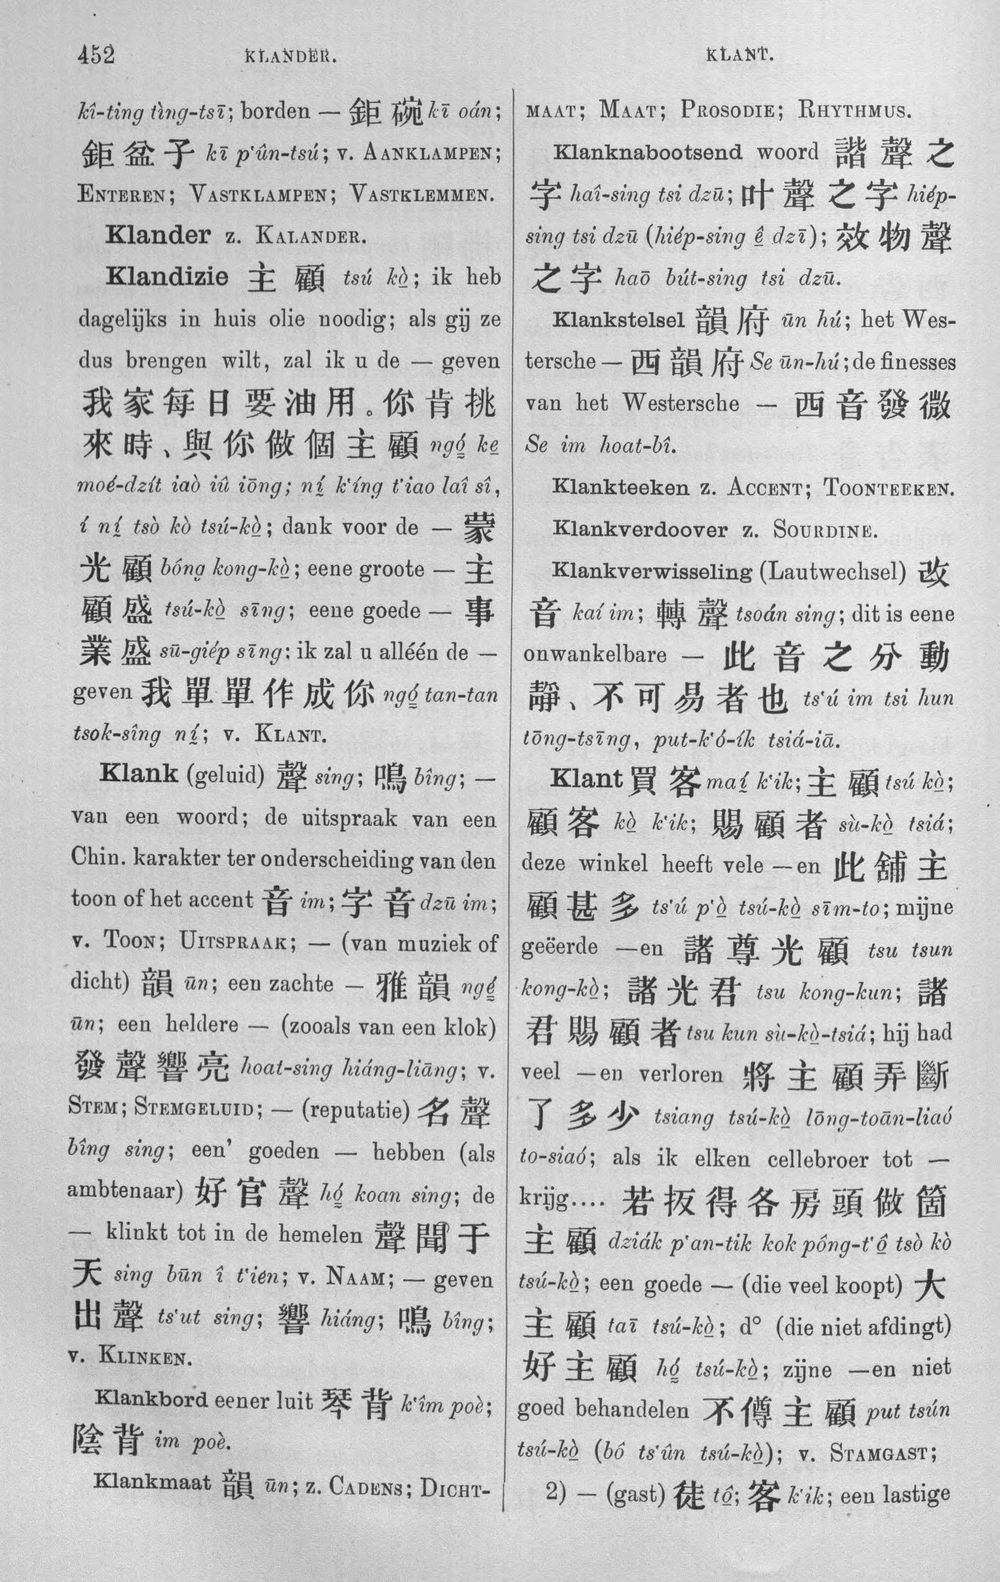 452
KLANDER.
KLANT.
kî-ting tìng-tsī; borden — 鉅碗 kī oán;
鉅盆子 kī p'ûn-tsú; v. AANKLAMPEN;
ENTEREN; VASTKLAMPEN; VASTKLEMMEN.
Klander z. KALANDER.
Klandizie 主顧 tsú kò̤; ik heb
dagelijks in huis olie noodig; als gij ze
dus brengen wilt, zal ik u de — geven
我家每日要油用。你肯挑
來時、與你做個主顧 ngó̤ ke̤
moé-dzít iaò iû iōng; ní̤ k'íng t'iao laî sî,
í ní̤ tsò kò tsú-kò̤; dank voor de — 蒙
光顧 bóng kong-kò̤; eene groote — 主
顧盛 tsú-kò̤ sīng; eene goede — 事
業盛 sū-giép sīng; ik zal u alléén de —
geven 我單單作成你 ngó̤ tan-tan
tsok-sîng ní̤; v. KLANT.
Klank (geluid) 聲 sing; 鳴 bîng; —
van een woord; de uitspraak van een
Chin. karakter ter onderscheiding van den
toon of het accent 音 im; 字音 dzū im;
v. TOON; UITSPRAAK; — (van muziek of
dicht) 韻 ūn; een zachte — 雅韻 ngé̤
ūn; een heldere — (zooals van een klok)
發聲響亮 hoat-sing hiáng-liāng; v.
STEM; STEMGELUID; — (reputatie) 名聲
bîng sing; een' goeden — hebben (als
ambtenaar) 好官聲 hó̤ koan sing; de
— klinkt tot in de hemelen 聲聞于
天 sing būn î t'ien; v. NAAM; — geven
出聲 ts'ut sing; 響 hiáng; 鳴 bîng;
v. KLINKEN.
Klankbord eener luit 琴背 k'îm poè;
陰背 im poè.
Klankmaat 韻 ūn; z. CADENS; DICHT-
MAAT; MAAT; PROSODIE; RHYTHMUS.
Klanknabootsend woord 諧聲之
字 haî-sing tsi dzū; 叶聲之字 hiép-
sing tsi dzū (hiép-sing ê̤ dzī); 效物聲
之字 haō bút-sing tsi dzū.
Klankstelsel 韻府 ūn hú; het Wes-
tersche — 西韻府 Se ūn-hú; de finesses
van het Westersche — 西音發微
Se im hoat-bî.
Klankteeken z. ACCENT; TOONTEEKEN.
Klankverdoover z. SOURDINE.
Klankverwisseling (Lautwechsel) 改
音 kaí im; 轉聲 tsoán sing; dit is eene
onwankelbare — 此音之分動
靜、不可易者也 ts'ú im tsi hun
tōng-tsīng, put-k'ó-ík tsiá-iā.
Klant 買客 maí̤ k'ik; 主顧 tsú kò̤;
顧客 kò̤ k'ik; 賜顧者 sù-kò̤ tsiá;
deze winkel heeft vele —en 此舖主
顧甚多 ts'ú p'ò̤ tsú-kò̤ sīm-to; mijne
geëerde —en 諸尊光顧 tsu tsun
kong-kò̤; 諸光君 tsu kong-kun; 諸
君賜顧者 tsu kun sù-kò̤-tsiá; hij had
veel —en verloren 將主顧弄斷
了多少 tsiang tsú-kò̤ lōng-toān-liaó
to-siaó; als ik elken cellebroer tot —
krijg.... 若扳得各房頭做箇
主顧 dziák p'an-tik kok póng-t'ô̤ tsò kò
tsú-kò̤; een goede — (die veel koopt) 大
主顧 taī tsú-kò̤; d° (die niet afdingt)
好主顧 hó̤ tsú-kò̤; zijne —en niet
goed behandelen 不僔主顧 put tsún
tsú-kò̤ (bó ts'ûn tsú-kò̤); v. STAMGAST;
2) — (gast) 徒 tô̤; 客 k'ik; een lastige